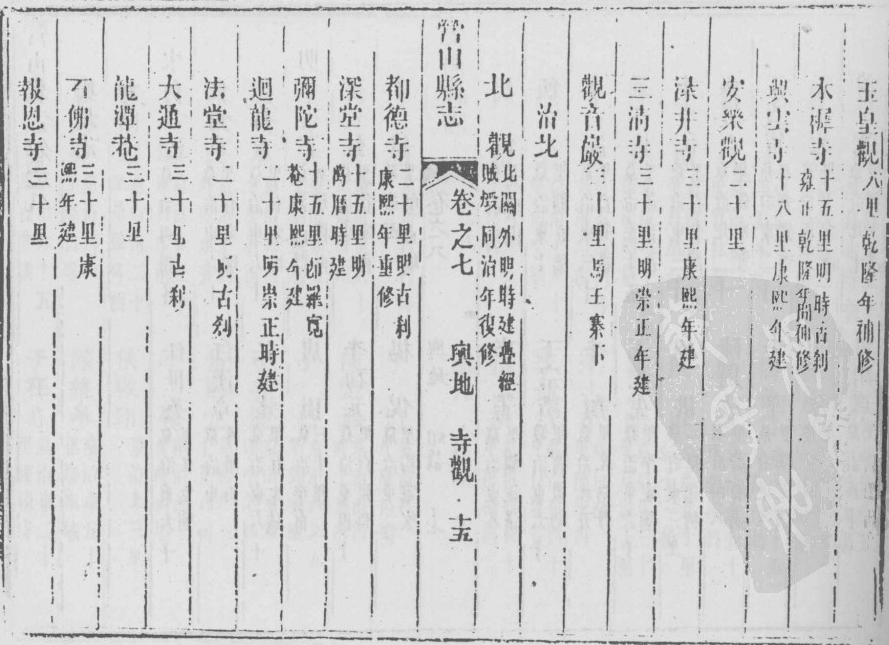 玉皇觀六里乾隆年補修
木樨寺十五里明時古刹
雍正乾隆年間補修
興雲寺十八里康熙年建
安樂觀二十里
淥井寺三十里康熙年建
三清寺三十里明崇正年建
觀音巖三十里馬王寨下
治北
北觀北關外明時建疊經
賊燬同治年復修
營山縣志 卷之七 輿地 寺觀 十五
都德寺二十里明古刹
康熙年重修
深堂寺十五里明
萬厯時建
彌陀寺十五里即羅寬
菴康熙年建
迴龍寺二十里明崇正時建
法堂寺二十里明古刹
大通寺三十里古刹
龍潭菴三十里
石佛寺三十里康
熙年建
報恩寺三十里